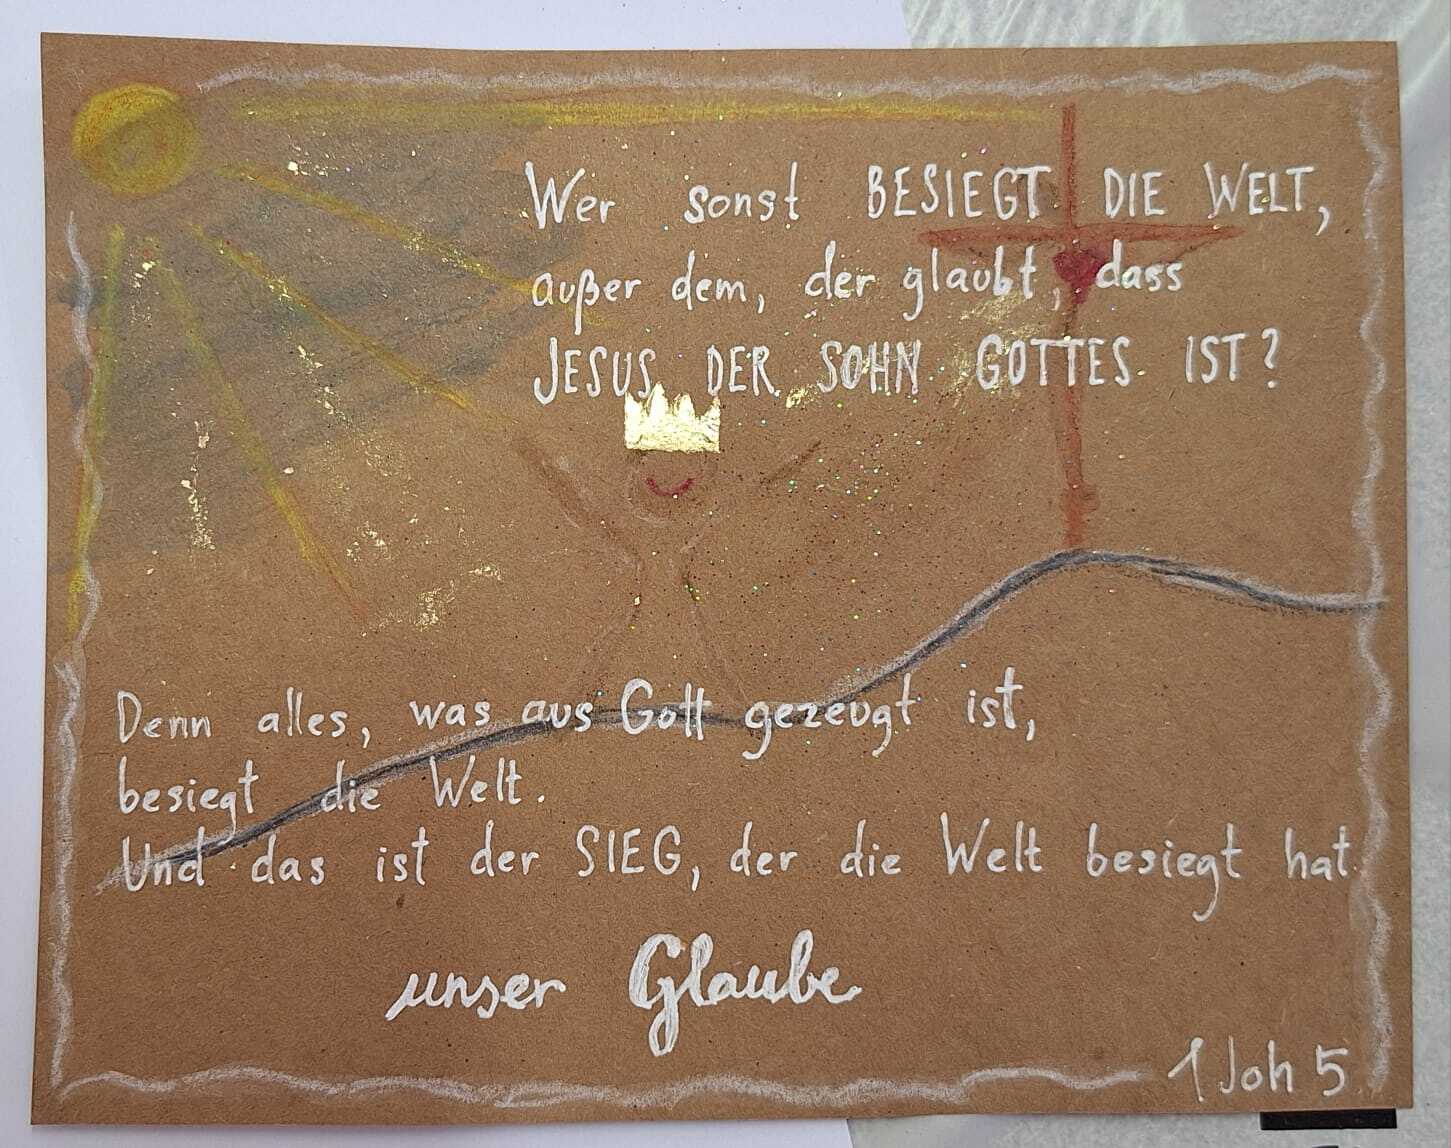 Wer sonst BESIEGT DIE WELT,
außer dem, der glaubt, dass
JESUS DER SOHN GOTTES IST?
Denn alles, was aus Gott gezeugt ist,
besiegt die Welt.
Und das ist der SIEG, der die Welt besiegt hat.
unser Glaube
1 Joh 5